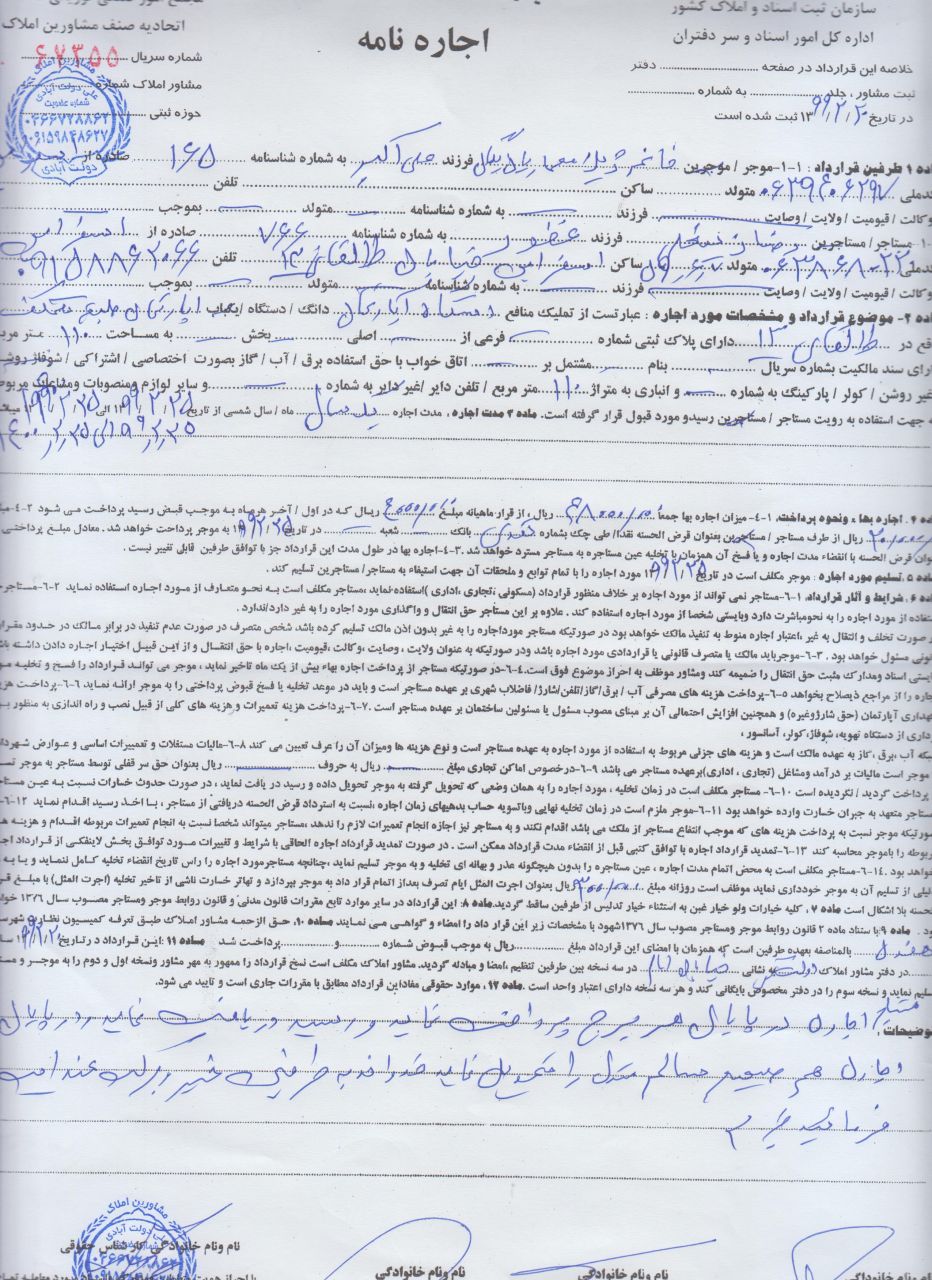 سازمان ثبت اسناد و املاک کشور
اداره کل امور اسناد و سر دفتران
خلاصه این قرارداد در صفحه دفتر
ثبت مشاور ، جلد به شماره
در تاریخ ۹۹/۲/۲۰ ۱۳ ثبت شده است
اجاره نامه
اتحادیه صنف مشاورین املاک
شماره سریال ۶۷۳۵۵
مشاور املاک شماره
حوزه ثبتی
مشاورین املاک
علی دولت آبادی
شماره عضویت
دولت آبادی
ماده ۱ طرفین قرارداد : ۱-۱-موجر / موجرین خانم فرزند علی اکبر به شماره شناسنامه ۱۶۵ صادره از
کدملی متولد ساکن تلفن
وکالت / قیومیت / ولایت / وصایت فرزند به شماره شناسنامه متولد بموجب
مستاجر / مستاجرین فرزند به شماره شناسنامه ۷۶۶ صادره از اسفراین
کدملی متولد ساکن اسفراین خیابان طالقانی تلفن
وکالت / قیومیت / ولایت / وصایت فرزند به شماره شناسنامه متولد بموجب
ماده ۲- موضوع قرارداد و مشخصات مورد اجاره : عبارتست از تملیک منافع دانگ / دستگاه / یکباب
واقع در طالقانی ۱۳ دارای پلاک ثبتی شماره فرعی از اصلی بخش به مساحت ۱۱۰ متر مربع
دارای سند مالکیت بشماره سریال بنام مشتمل بر اتاق خواب با حق استفاده برق / آب / گاز بصورت اختصاصی / اشتراکی / شوفاژ روشن
غیر روشن / کولر / پارکینگ به شماره و انباری به متراژ ۱۱۰ متر مربع / تلفن دایر/غیر دایر به شماره و سایر لوازم و منصوبات و مشاعات مربوطه
جهت استفاده به رویت مستاجر / مستاجرین رسیدو مورد قبول قرار گرفته است. ماده ۳ مدت اجاره ، مدت اجاره یک سال ماه / سال شمسی از تاریخ الی
ماده ۴ ، اجاره بها ، ونحوه پرداخت، ۱-۴- میزان اجاره بها جمعاً ریال ، از قرار ماهیانه مبلغ ریال که در اول / آخر هر ماه به موجب قبض رسید پرداخت می شود ۲-۴-
ریال از طرف مستاجر / مستاجرین بعنوان قرض الحسنه نقدا/ طی چک بشماره نقدی بانک شعبه در تاریخ ۹۹/۲/۲۵ ۱۳ به موجر پرداخت خواهد شد . معادل مبلغ پرداختی به
عنوان قرض الحسنه با انقضاء مدت اجاره و یا فسخ آن همزمان با تخلیه عین مستاجره به مستاجر مسترد خواهد شد .۳-۴-اجاره بها در طول مدت این قرارداد جز با توافق طرفین قابلی تغییر نیست .
ماده ۵ ،تسلیم مورد اجاره : موجر مکلف است در تاریخ ۹۹/۲/۲۵ ۱۳ مورد اجاره را با تمام توابع و ملحقات آن جهت استیفاء به مستاجر/ مستاجرین تسلیم کند .
ماده ۶ ، شرایط و آثار قرارداد، ۱-۶-مستاجر نمی تواند از مورد اجاره بر خلاف منظور قرارداد (مسکونی ،تجاری ،اداری )استفاده نماید ،مستاجر مکلف است به نحو متعارف از مورد اجاره استفاده نماید ۲-۶-مستاجر
استفاده از مورد اجاره را به نحومباشرت دارد وبایستی شخصا از مورد اجاره استفاده کند . علاوه بر این مستأجر حق انتقال و واگذاری مورد اجاره را به غیر دارد/ندارد .
در صورت تخلف و انتقال به غیر ،اعتبار اجاره منوط به تنفیذ مالک خواهد بود در صورتیکه مستاجر مورداجاره را به غیر بدون اذن مالک تسلیم کرده باشد شخص متصرف در صورت عدم تنفیذ در برابر مالک در حدود مقررات
قانونی مسئول خواهد بود . ۳-۶-موجرباید مالک یا متصرف قانونی یا قراردادی مورد اجاره باشد ودر صورتیکه به عنوان ولایت ، وصایت ،وکالت ،قیومیت ،اجاره با حق انتقال و از این قبیل اختیار اجاره دادن داشته باشد
بایستی اسناد ومدارک مثبت حق انتقال را ضمیمه کند ومشاور موظف به احراز موضوع فوق است.۴-۶-در صورتیکه مستاجر از پرداخت اجاره بهاء بیش از یک ماه تاخیر نماید ، موجر می تواند قرارداد را فسخ و تخلیه مورد
اجاره را از مراجع ذیصلاح بخواهد ۵-۶-پرداخت هزینه های مصرفی آب / برق/گاز/تلفن/شارژ/ فاضلاب شهری بر عهده مستاجر است و باید در موعد تخلیه یا فسخ قبوض پرداختی را به موجر ارائه نماید ۶-۶-پرداخت هزینه
نگهداری آپارتمان (حق شارژوغیره) و همچنین افزایش احتمالی آن بر مبنای مصوب مسئول یا مسئولین ساختمان بر عهده مستاجر است .۷-۶-پرداخت هزینه تعمیرات و هزینه های کلی از قبیل نصب و راه اندازی به منظور بهره
برداری از دستگاه تهویه، شوفاژ،کولر، آسانسور ،
شبکه آب ،برق ،گاز به عهده مالک است و هزینه های جزئی مربوط به استفاده از مورد اجاره به عهده مستاجر است و نوع هزینه ها ومیزان آن را عرف تعیین می کند، ۸-۶-مالیات مستغلات و تعمیرات اساسی و عوارض شهرداری
موجر است مالیات بر درآمد ومشاغل (تجاری ، اداری)برعهده مستاجر می باشد ۹-۶-درخصوص اماکن تجاری مبلغ ریال به حروف ریال بعنوان حق سر قفلی توسط مستاجر به موجر تسلیم
پرداخت گردید / نگردیده است ۱۰-۶- مستاجر مکلف است در زمان تخلیه ، مورد اجاره را به همان وضعی که تحویل گرفته به موجر تحویل داده و رسید در یافت نماید ، در صورت حدوث خسارات نسبت به عین مستاجره
مستاجر متعهد به جبران خسارت وارده خواهد بود ۱۱-۶-موجر ملزم است در زمان تخلیه نهایی وباتسویه حساب بدهیهای زمان اجاره ،نسبت به استرداد قرض الحسنه دریافتی از مستاجر ، با اخذ رسید اقدام نماید ۱۲-۶-
درصورتیکه موجر نسبت به پرداخت هزینه های که موجب انتفاع مستاجر از ملک می باشد اقدام نکند و به مستاجر نیز اجازه انجام تعمیرات لازم را ندهد ،مستاجر میتواند شخصا نسبت به انجام تعمیرات مربوطه اقدام و هزینه های
مربوطه را باموجر محاسبه کند ۱۳-۶-تمدید قرارداد اجاره با توافق کتبی قبل از انقضاء مدت قرارداد ممکن است . در صورت تمدید قرارداد اجاره الحاقی با شرایط و تغییرات مورد توافق بخش لاینفکی از قرارداد اجاره
خواهد بود .۱۴-۶-مستاجر مکلف است به محض اتمام مدت اجاره ، عین مستاجره را بدون هیچگونه عذر و بهانه ای تخلیه و به موجر تسلیم نماید ،چنانچه مستاجرمورد اجاره را راس تاریخ انقضاء تخلیه کامل ننماید و یا به هر
دلیلی از تسلیم آن به موجر خودداری نماید موظف است روزانه مبلغ ریال بعنوان اجرت المثل ایام تصرف بعداز اتمام قرار داد به موجر بپردازد و تهاتر خسارت ناشی از تاخیر تخلیه (اجرت المثل) با مبلغ قرض
الحسنه بلا اشکال است ماده ۷ ، کلیه خیارات ولو خیار غبن به استثناء خیار تدلیس از طرفین ساقط گردید.ماده ۸: این قرارداد در سایر موارد تابع مقررات قانون مدنی و قانون روابط موجر ومستاجر مصوب سال ۱۳۷۶ خواهد
بود . ماده ۹:با ستناد ماده ۲ قانون روابط موجر ومستاجر مصوب سال ۱۳۷۶شهود با مشخصات زیر این قرار داد را امضاء و گواهی می نمایند ماده ۱۰، حق الزحمه مشاور املاک طبق تعرفه کمیسیون نظارت شهرستان
بالمناصفه بعهده طرفین است که همزمان با امضای این قرارداد مبلغ ریال به موجب قبوض شماره و پرداخت شد ماده ۱۱ :این قرارداد در تاریخ ۹۹/۲/۲۰
در دفتر مشاور املاک به نشانی در سه نسخه بین طرفین تنظیم ،امضا و مبادله گردید. مشاور املاک مکلف است نسخ قرارداد را ممهور به مهر مشاور ونسخه اول و دوم را به موجر و مستاجر
تسلیم نماید و نسخه سوم را در دفتر مخصوص بایگانی کند و هر سه نسخه دارای اعتبار واحد است . ماده ۱۲ ، موارد حقوقی مفاداین قرارداد مطابق با مقررات جاری است و تایید می شود.
توضیحات : اجاره در پایان هر برج پرداخت نماید و رسید دریافت نماید و در پایان
اجاره هم صحیح سالم منزل را تحویل نماید خداوند به طرفین خیر و برکت عنایت
فرمائید
نام ونام خانوادگی کارشناس حقوقی
نام ونام خانوادگی
نام ونام خانوادگی
نام ونام خانوادگی